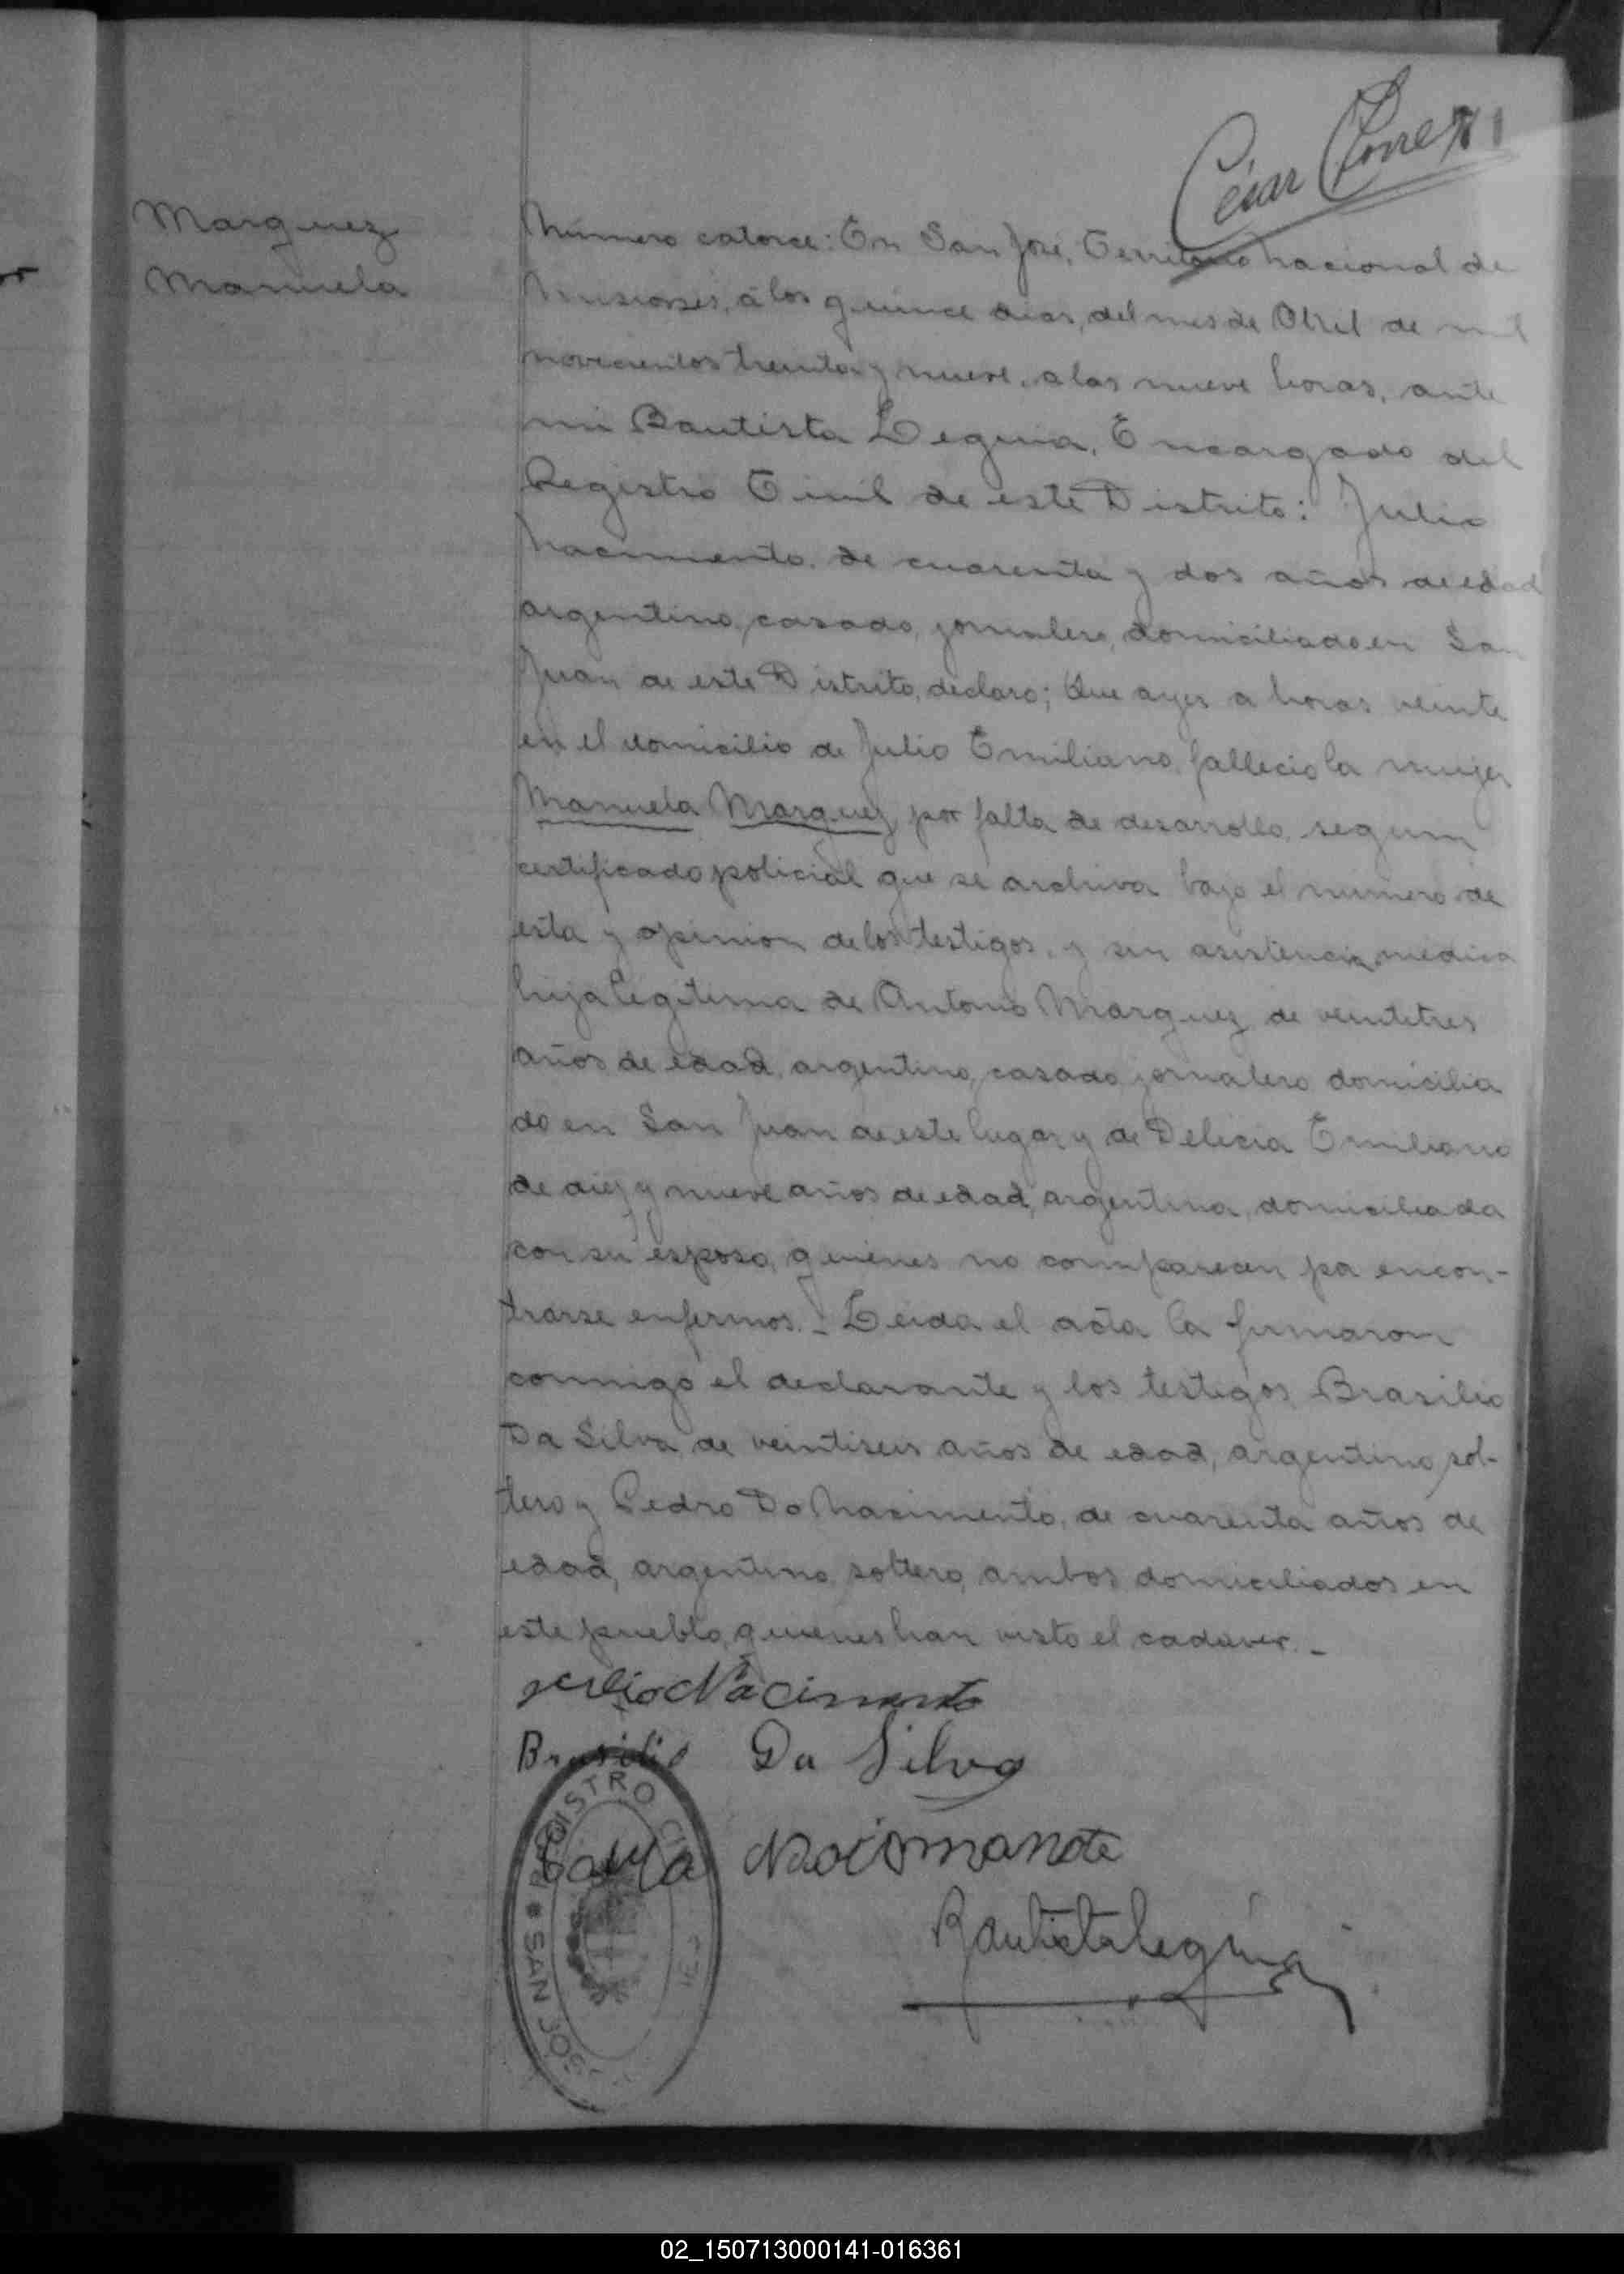 César Torres
Marquez
Manuela
Número catorce: En San José, Territorio Nacional de
Misiones, á los quince dias, del mes de Abril de mil
novecientos treinta y nueve, a las nueve horas, ante
mi Bautista Leguia, Encargado del
Registro Civil de este Distrito: Julio
Nacimento. de cuarenta y dos años de edad
argentino, casado, jornalero, domiciliado en San
Juan de este Distrito, declaro; Que ayer a horas veinte
en el domicilio de Julio Emiliano, fallecio la mujer
Manuela Marquez, por falta de desarrollo, segum
certificado policial que se archiva bajo el numero de
esta y opinion de los testigos, y sin asistencia medica
hija legitima de Antonio Marquez, de veintitres
años de edad, argentino, casado, jornalero domicilia
do en San Juan de este lugar, y de Delicia Emiliano
de diez y nueve años de edad, argentina, domiciliada
con su esposo, quienes no comparecen por encon-
trarse enfermos._ Leida el acta la firmaron
conmigo el declarante y los testigos Brasilio
Da Silva de veintiseis años de edad, argentino, sol-
tero y Pedro Do Nacimento, de cuarenta años de
edad, argentino, soltero, ambos domiciliados en
este pueblo, quienes han visto el cadaver._
Julio Nacimento
Brasilio Da Silva
Bautista Leguia
REGISTRO CIVIL
* SAN JOSE
02_150713000141-016361